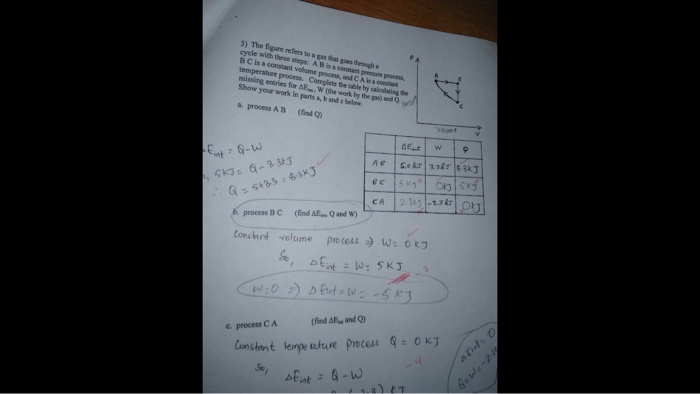 3) The figure refers to a gas that goes through a
cycle with three steps: A B is a constant pressure process,
B C is a constant volume process, and C A is a constant
temperature process. Complete the table by calculating the
missing entries for ΔEint, W (the work by the gas) and Q
Show your work in parts a, b and c below.
P
A
B
C
V
a. process A B (find Q)
Eint = Q-W
5KJ = Q-3.3KJ
∴ Q = 5+3.3 = 8.3KJ
ΔEint W Q
AB 5.0kJ 3.3kJ 8.3KJ
BC 5KJ 0KJ 5KJ
CA
0KJ
b. process BC (find ΔEint, Q and W)
Constant volume process ⇒ W= 0KJ
So, ΔEint = W= 5KJ
W=0 ⇒ ΔEint=W= -5KJ
c. process CA (find ΔEint and Q)
Constant temperature process Q = 0KJ
-4
So, ΔEint = Q-W
ΔEint=0